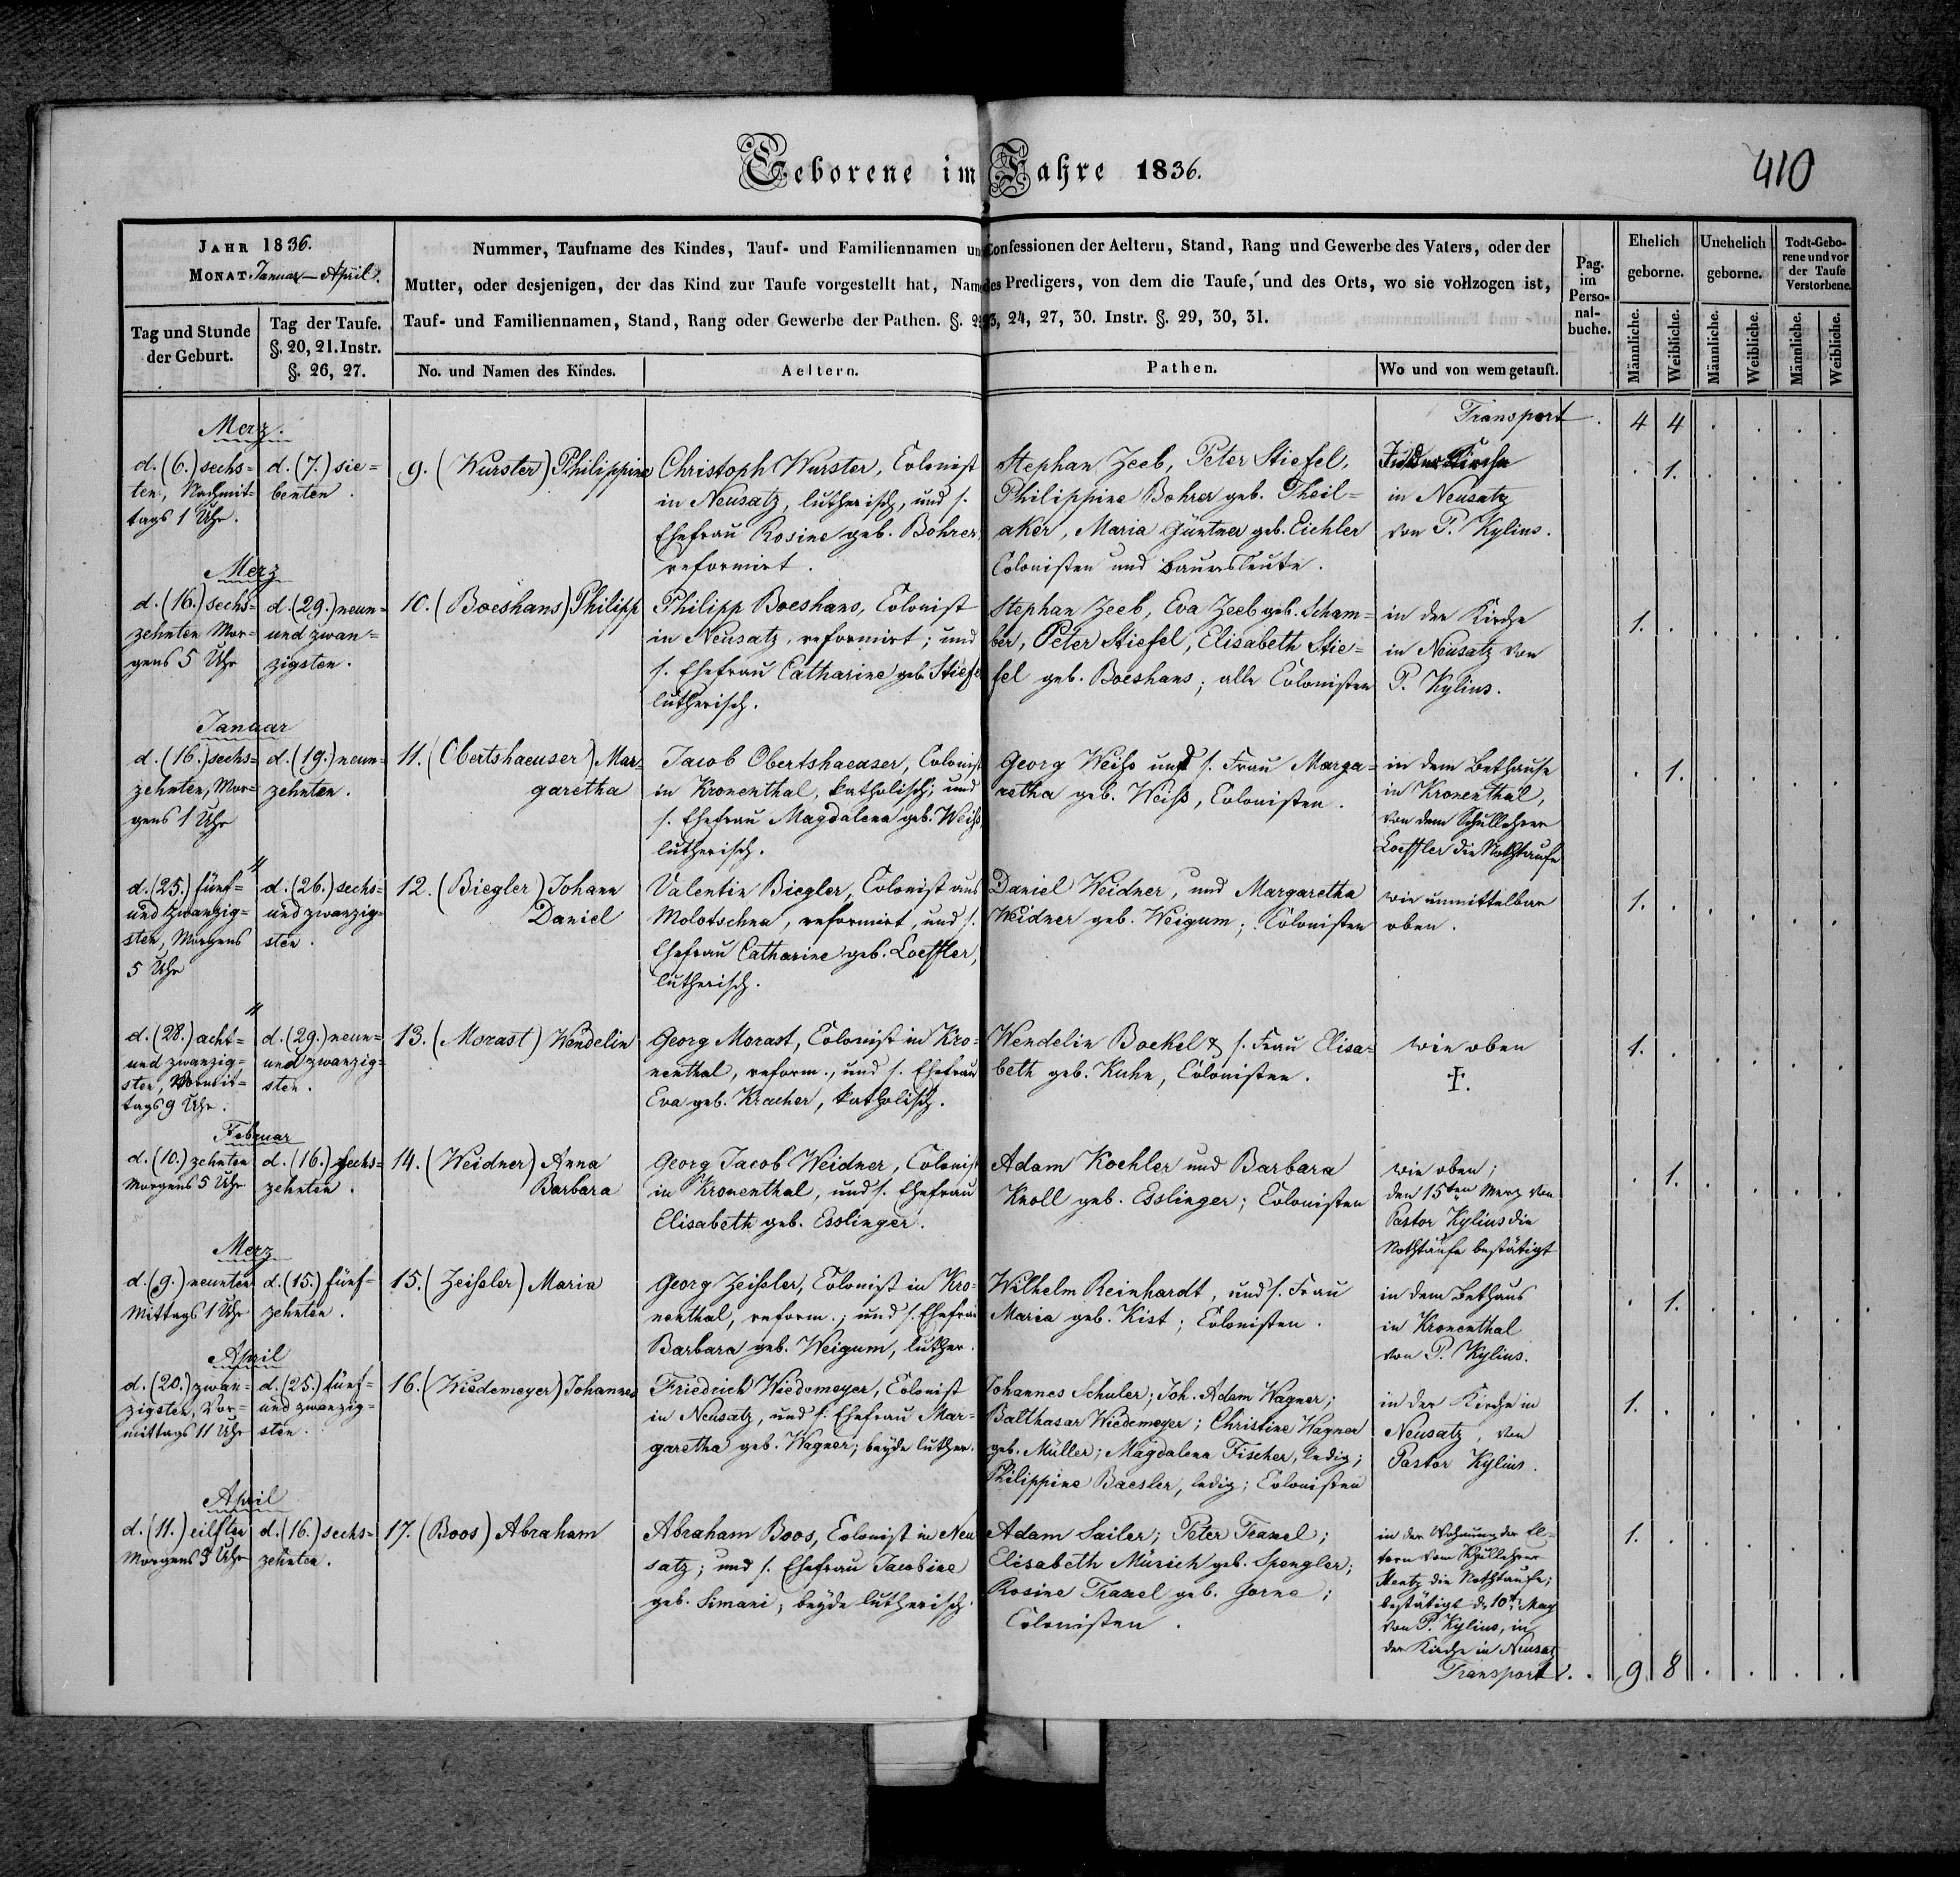 Geborene im Jahre 1836.
410
JAHR 1836.
MONAT Januar – April.
Nummer, Taufname des Kindes, Tauf- und Familiennamen un Confessionen der Aeltern, Stand, Rang und Gewerbe des Vaters, oder der
Mutter, oder desjenigen, der das Kind zur Taufe vorgestellt hat, Name des Predigers, von dem die Taufe, und des Orts, wo sie vollzogen ist,
Tauf- und Familiennamen, Stand, Rang oder Gewerbe der Pathen. §. 23, 24, 27, 30. Instr. §. 29, 30, 31.
Tag und Stunde
der Geburt.
Tag der Taufe.
§. 20, 21. Instr.
§. 26, 27.
No. und Namen des Kindes.
Aeltern.
Pathen.
Wo und von wem getauft.
Pag.
im
Perso-
nal-
buche.
Ehelich
geborne.
Unehelich
geborne.
Todt-Gebo-
rene und vor
der Taufe
Verstorbene.
Männliche.
Weibliche.
Männliche.
Weibliche.
Männliche.
Weibliche.
Transport . 4 4 . . . .
Merz.
d. (6.) sechs=
ten, Nachmit=
tags 1 Uhr.
d. (7.) sie=
benten.
9. (Wurster) Philippine
Christoph Wurster, Colonist
in Neusatz, lutherisch, und s.
Ehefrau Rosine geb. Bohrer,
reformirt.
Stephan Zeeb, Peter Stiefel,
Philippine Bohrer geb. Theil=
aker, Maria Güntner geb. Eichler
Colonisten und Bauersleute.
In der Kirche
in Neusatz
von P. Kylius.
. 1. . . . .
Merz
d. (16.) sechs=
zehnten Mor=
gens 5 Uhr
d. (29.) neun=
und zwan=
zigsten.
10. (Boeshans) Philipp
Philipp Boeshans, Colonist
in Neusatz, reformirt; und
s. Ehefrau Catharine geb. Stiefel
lutherisch.
Stephan Zeeb, Eva Zeeb geb. Scham=
ber, Peter Stiefel, Elisabeth Stie=
fel geb. Boeshans; alle Colonisten
in der Kirche
in Neusatz von
P. Kylius.
1. . . . . .
Januar
d. (16.) sechs=
zehnten, Mor=
gens 1 Uhr
d. (19.) neun=
zehnten.
11. (Obertshaeuser) Mar=
garetha
Jacob Obertshaeuser, Colonist
in Kronenthal, katholisch; und
s. Ehefrau Magdalena geb. Weiß,
lutherisch.
Georg Weiß und s. Frau Marga=
retha geb. Weiß, Colonisten.
in dem Bethause
in Kronenthal,
von dem Schullehrer
Loeffler die Nothtaufe
. 1. . . . .
"
d. (25.) fünf=
und zwanzig=
sten, Morgens
5 Uhr
d. (26.) sechs=
und zwanzig=
sten.
12. (Biegler) Johann
Daniel
Valentin Biegler, Colonist aus
Molotschna, reformirt, und s.
Ehefrau Catharine geb. Loeffler,
lutherisch.
Daniel Weidner, und Margaretha
Weidner geb. Weigum; Colonisten
wie unmittelbar
oben.
1. . . . . .
"
d. (28.) acht=
und zwanzig=
sten, Vormit=
tags 9 Uhr.
d. (29.) neun=
und zwanzig=
sten.
13. (Morast) Wendelin
Georg Morast, Colonist in Kro=
nenthal, reform., und s. Ehefrau
Eva geb. Kracher, katholisch.
Wendelin Boekel & s. Frau Elisa=
beth geb. Kuhn, Colonisten.
wie oben
‡.
1. . . . . .
Februar
d. (10.) zehnten
Morgens 5 Uhr
d. (16.) sechs=
zehnten.
14. (Weidner) Anna
Barbara
Georg Jacob Weidner, Colonist
in Kronenthal, und s. Ehefrau
Elisabeth geb. Esslinger.
Adam Koehler und Barbara
Knoll geb. Esslinger; Colonisten
wie oben;
den 15ten Merz von
Pastor Kylius die
Nothtaufe bestätigt
. 1. . . . .
Merz
d. (9.) neunten
Mittags 1 Uhr
d. (15.) fünf=
zehnten.
15. (Zeißler) Maria
Georg Zeißler, Colonist in Kro=
nenthal, reform.; und s. Ehefrau
Barbara geb. Weigum, luther.
Wilhelm Reinhardt, und s. Frau
Maria geb. Kist; Colonisten.
in dem Bethaus
in Kronenthal
von P. Kylius.
. 1. . . . .
April
d. (20.) zwan=
zigsten, Vor=
mittags 11 Uhr
d. (25.) fünf=
und zwanzig=
sten.
16. (Wiedemeyer) Johannes
Friedrich Wiedemeyer, Colonist
in Neusatz, und s. Ehefrau Mar=
garetha geb. Wagner; beyde luther.
Johannes Schuler; Joh. Adam Wagner;
Balthasar Wiedemeyer; Christine Wagner
geb. Müller; Magdalena Fischer, ledig;
Philippine Baesler, ledig; Colonisten
in der Kirche in
Neusatz, von
Pastor Kylius.
1. . . . . .
April
d. (11.) eilften
Morgens 3 Uhr
d. (16.) sechs=
zehnten.
17. (Boos) Abraham
Abraham Boos, Colonist in Neu
satz; und s. Ehefrau Jacobine
geb. Simani, beyde lutherisch.
Adam Sailer; Peter Traxel;
Elisabeth Mürich geb. Spengler;
Rosine Traxel geb. Gorne;
Colonisten.
in der Wohnung der El=
tern vom Schullehrer
die Nothtaufe;
bestätigt d. 10t. May
von P. Kylius, in
der Kirche in Neusatz
1. . . . . .
Transport . . 9 8 . . . .